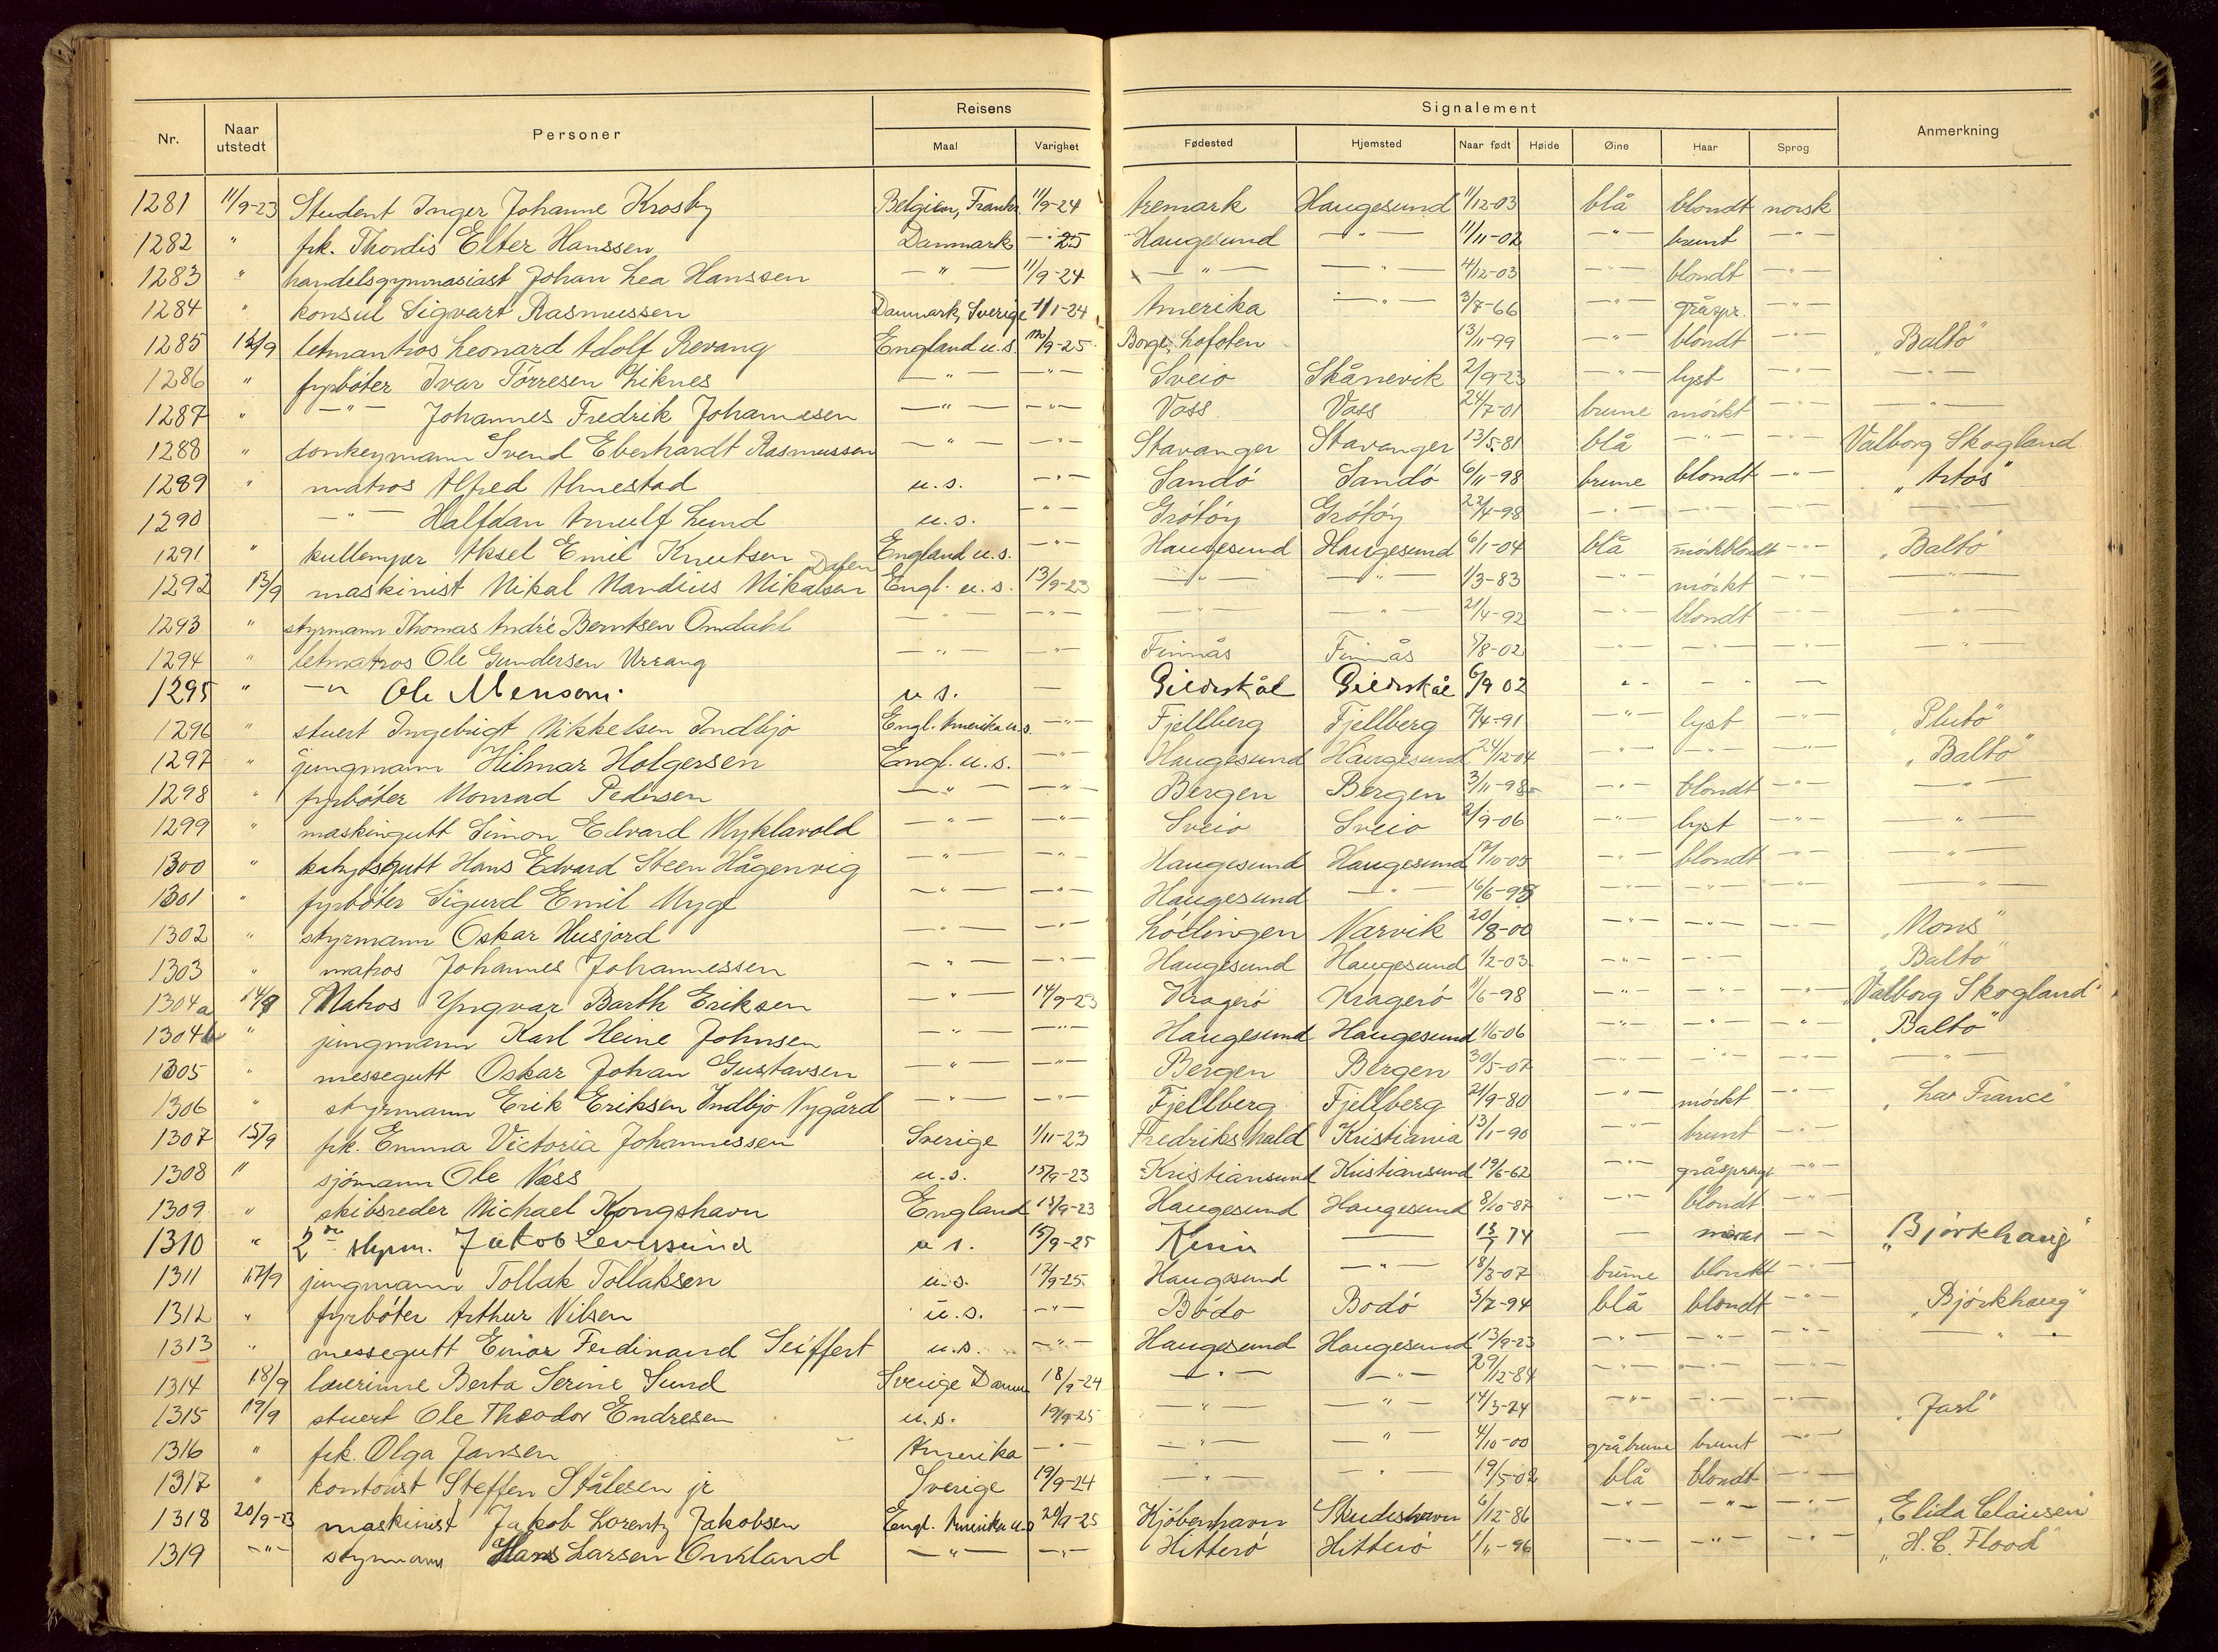 Nr. Naar utstedt Personer Reisens Maal Varighet Signalement Fødested Hjemsted Naar født Høide Øine Haar Sprog Anmerkning
1281 11/9-23 Student Inger Johanne Krosby Belgien, Frankr. 11/9-24 Aremark Haugesund 11/12-03 blå blondt norsk
1282 " frk. Thordis Elter Hanssen Danmark -"- 25 Haugesund -"- 11/11-02 -"- brunt -"-
1283 " handelsgymnasiast Johan Lea Hanssen -"- 11/9-24 -"- -"- 4/12-03 -"- blondt -"-
1284 " konsul Sigvart Rasmussen Danmark, Sverige 11/1-24 Amerika -"- 3/7-66 -"- gråspr. -"-
1285 12/9 letmatros Leonard Adolf Revang England u.s. 12/9-25 Borge, Lofoten 13/11-99 -"- blondt -"- "Balto"
1286 " fyrbøter Ivar Tørresen Liknes -"- -"- Sveio Skånevik 2/9-23 -"- lyst -"- -"-
1287 " -"- Johannes Fredrik Johannesen -"- -"- Voss Voss 24/7-01 brune mørkt -"- -"-
1288 " donkeymann Svend Eberhardt Rasmussen -"- -"- Stavanger Stavanger 13/5-81 blå -"- -"- Valborg Skogland
1289 " matros Alfred Almestad u.s. -"- Sandø Sandø 6/11-98 brune blondt -"- "Artos"
1290 -"- Halfdan Arnulf Lund u.s. -"- Grøtøy Grøtøy 22/4-98 -"- -"- -"- -"-
1291 " kullemper Aksel Emil Knutsen England u.s. -"- Haugesund Haugesund 6/1-04 blå mørkblondt -"- "Balto"
1292 13/9 maskinist Nikal Nandius Nikalsen Dalen Engl. u.s. 13/9-23 -"- -"- 1/3-83 -"- mørkt -"- -"-
1293 " styrmann Thomas André Berntsen Omdahl -"- -"- -"- -"- 21/4-92 -"- blondt -"- -"-
1294 " letmatros Ole Gundersen Urrang -"- -"- Finnås Finnås 5/8-02 -"- -"- -"- -"-
1295 " -"- Ole Mensoni u s. — Gildeskål Gildeskål 6/9 02 -"- - - —
1296 " stuert Ingebrigt Mikkelsen Indbjo Engl. Amerika u.s. -"- Fjellberg Fjellberg 7/4-91 -"- lyst -"- "Pluto"
1297 " jungmann Hilmar Holgersen Engl. u.s. -"- Haugesund Haugesund 24/12-04 -"- -"- -"- "Balto"
1298 " fyrbøter Monrad Pedersen -"- -"- Bergen Bergen 3/11-98 -"- blondt -"- -"-
1299 " maskingutt Simon Edvard Myklavold -"- -"- Sveio Sveio 2/9-06 -"- lyst -"- -"-
1300 " kahytsgutt Hans Edvard Steen Hågenvig -"- -"- Haugesund Haugesund 17/10-05 -"- blondt -"- -"-
1301 " fyrbøter Sigurd Emil Myge -"- -"- Haugesund -"- 16/6-98 -"- -"- -"- -"-
1302 " styrmann Oskar Husjord -"- -"- Lødingen Narvik 20/8-00 -"- -"- -"- "Mons"
1303 " matros Johannes Johannessen -"- -"- Haugesund Haugesund 1/2-03 -"- -"- -"- "Balto"
1304a 14/9 Matros Yngvar Barth Eriksen -"- 14/9-23 Kragerø Kragerø 11/6-98 -"- -"- -"- "Valborg Skogland"
1304b " jungmann Karl Heine Johnsen -"- -"- Haugesund Haugesund 1/6-06 -"- -"- -"- "Balto"
1305 " messegutt Oskar Johan Gustavsen -"- -"- Bergen Bergen 30/5-07 -"- -"- -"- -"-
1306 " styrmann Erik Eriksen Indbjo Nygård -"- -"- Fjellberg Fjellberg 21/9-80 -"- mørkt -"- "Lar France"
1307 15/9 frk. Emma Victoria Johannessen Sverige 1/11-23 Fredrikshald Kristiania 13/1-90 -"- brunt -"-
1308 " sjømann Ole Vass u.s. 15/9-23 Kristiansund Kristiansund 19/6-62 -"- gråsprengt -"-
1309 " skibsreder Michael Kongshavn England 15/9-23 Haugesund Haugesund 8/10-87 -"- blondt -"-
1310 " 2den styrm. Jakob Leversund u s. 15/9-25 Kinn — 13/7 74 — mørkt -- "Bjørkhaug"
1311 17/9 jungmann Tollak Tollaksen u.s. 17/9-25 Haugesund -"- 18/3-07 brune blondt -"-
1312 " fyrbøter Arthur Nilsen u.s. -"- Bodø Bodø 3/7-94 blå blondt -"- "Bjørkhaug"
1313 " messegutt Einar Ferdinand Seiffert u.s. -"- Haugesund Haugesund 13/9-23 -"- -"- -"- -"-
1314 18/9 lærerinne Berta Serine Sund Sverige Danm 18/9-24 -"- -"- 29/12-84 -"- -"- -"-
1315 19/9 stuert Ole Theodor Endresen u.s. 19/9-25 -"- -"- 14/3-74 -"- -"- -"- "Jarl"
1316 " frk. Olga Jansen Amerika -"- -"- -"- 4/10-00 gråbrune brunt -"-
1317 " kontorist Steffen Stålesen jr Sverige 19/9-24 -"- -"- 19/5-02 blå blondt -"-
1318 20/9-23 maskinist Jakob Lorentz Jakobsen Engl. Amerika u.s 20/9-25 Kjøbenhavn Skudeshavn 6/12-86 -"- -"- -"- "Elida Clausen"
1319 -"- styrmann Hans Larsen Onsland -"- -"- Hitterø Hitterø 1/11-96 -"- -"- -"- "H. C. Flood"